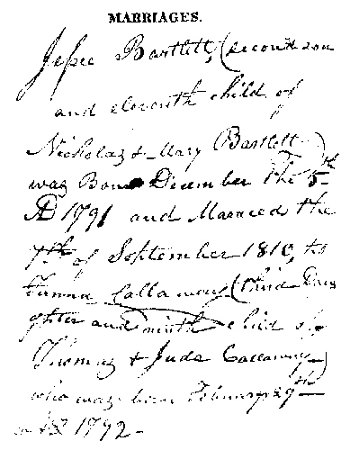 MARRIAGES.
Jesse Bartlett, (second son
and eleventh child of
Nicholas & Mary Bartlett)
was Born December the 5th
AD 1791 and Married the
7th of September 1810, to
Callaway (third Dau
ghter and ninth child of
Thomas & Juda Callaway)
who was born February 29th
AD 1792-